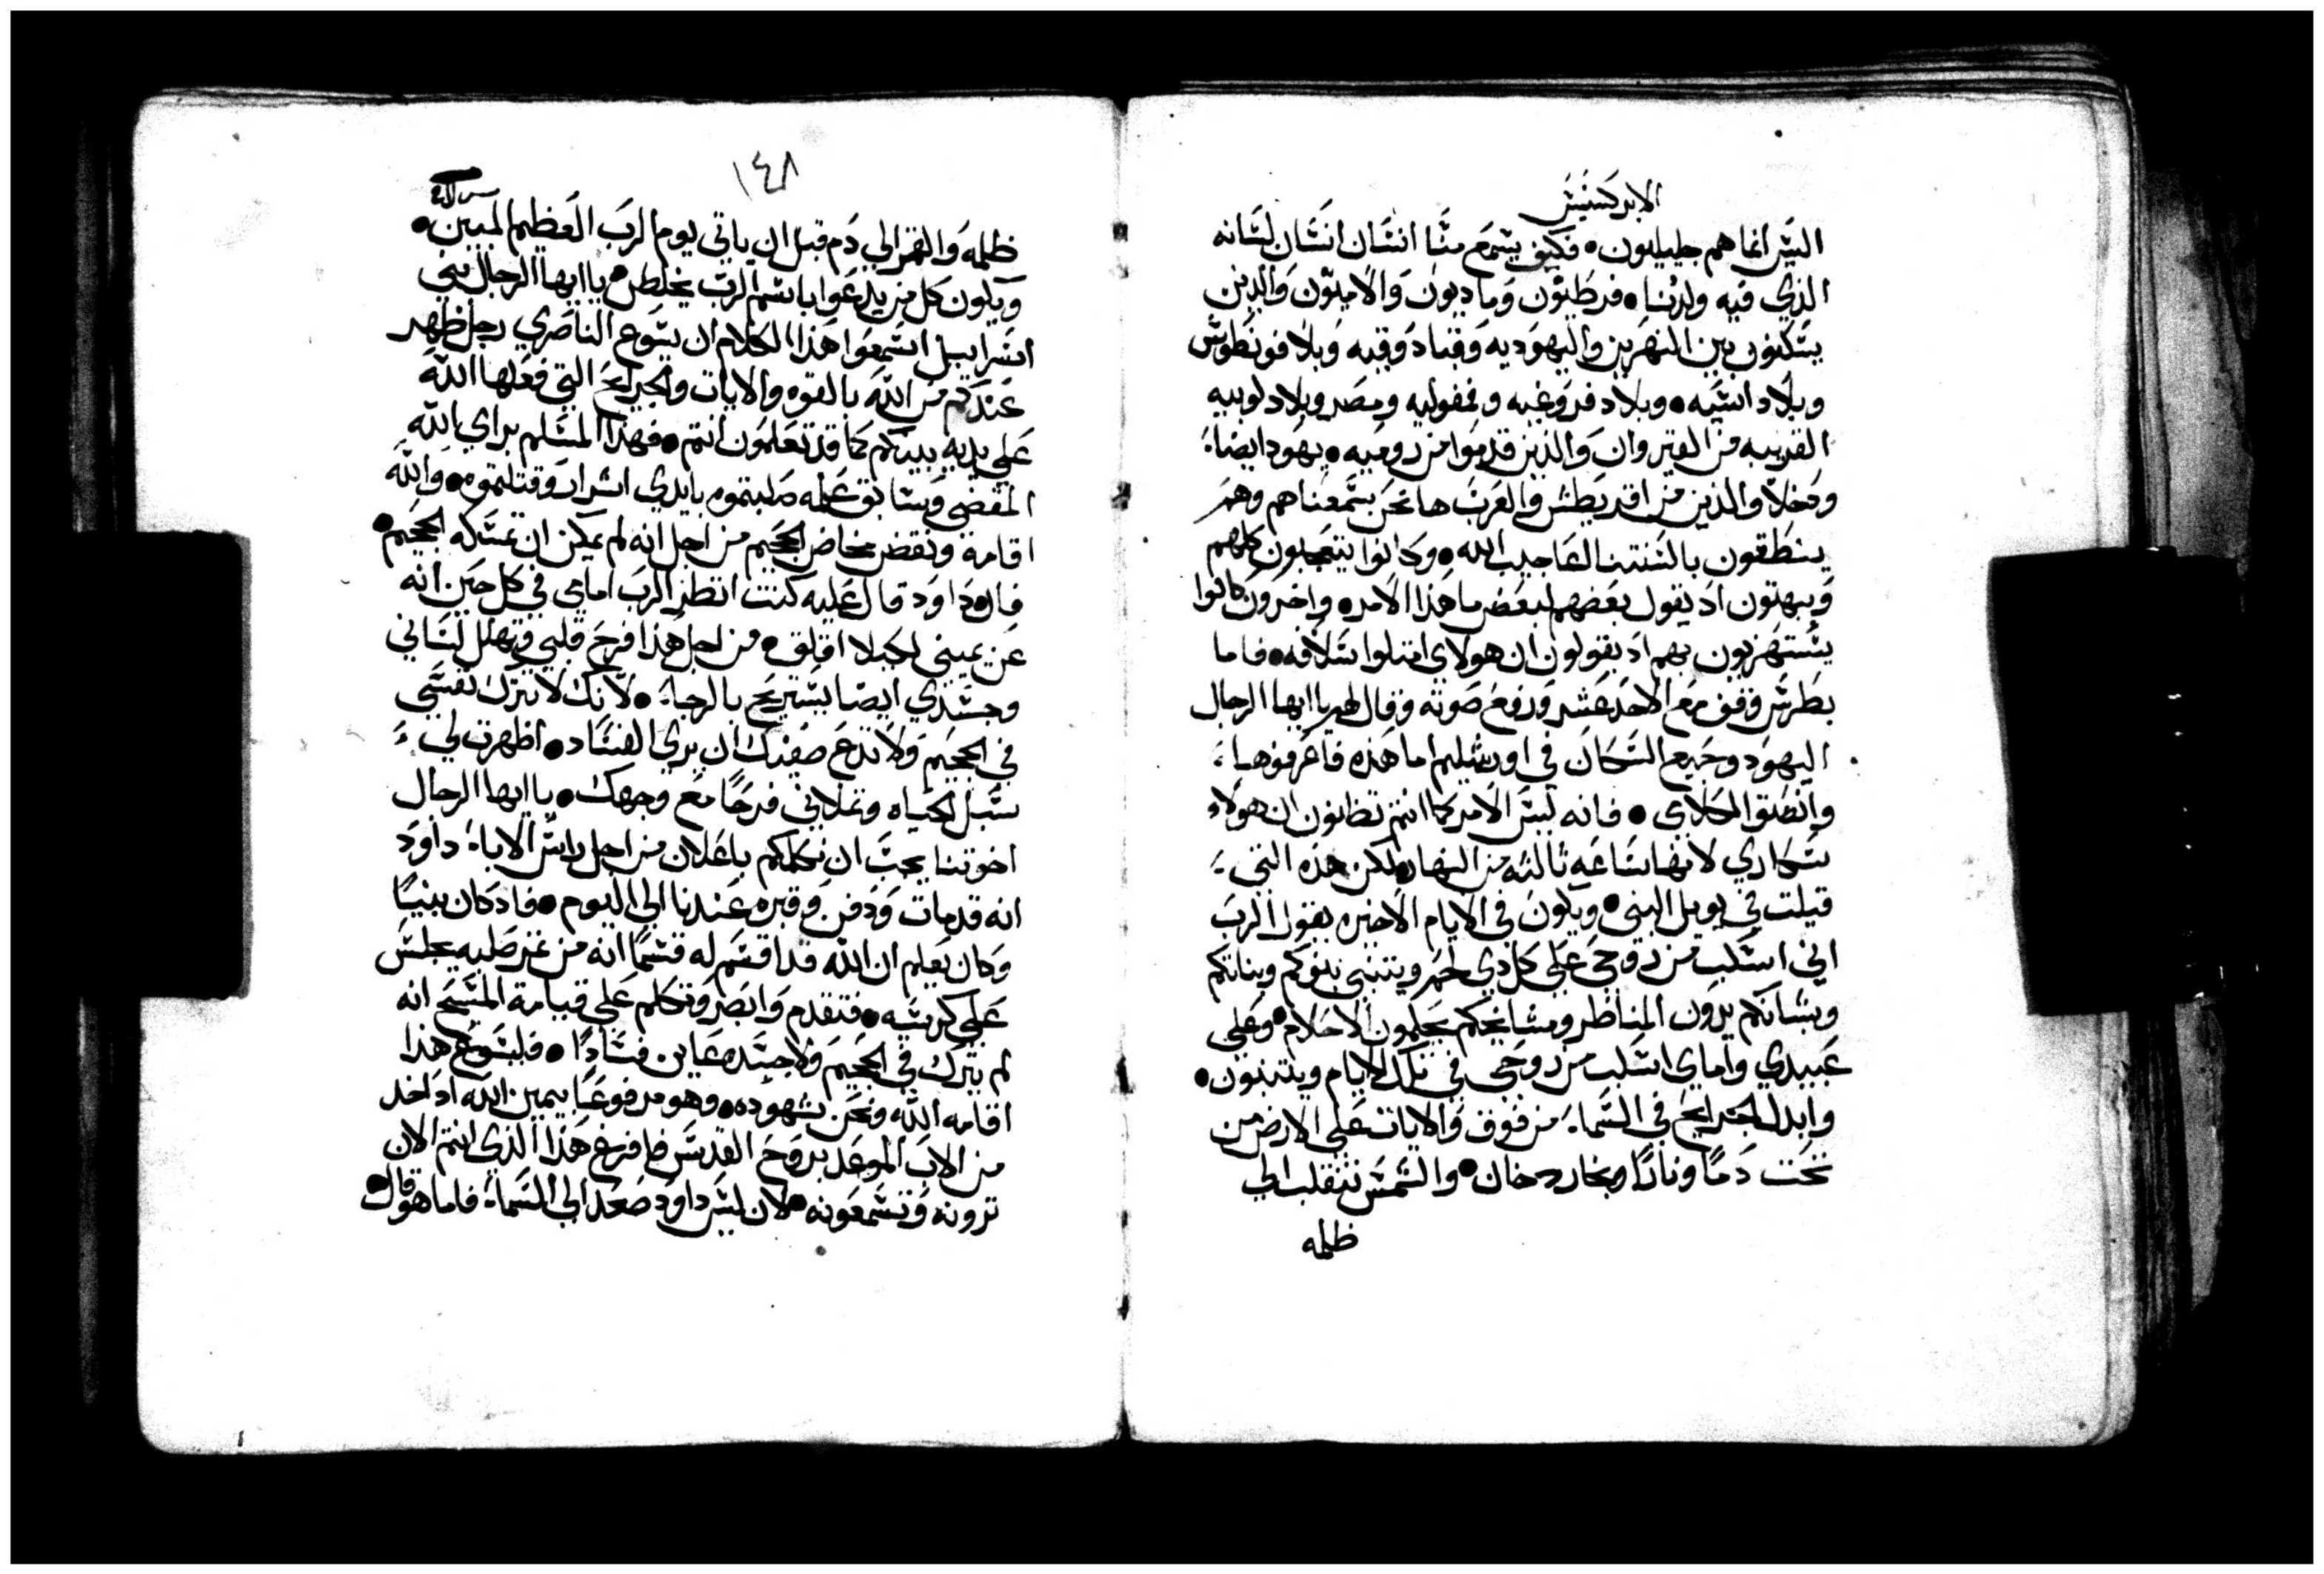 الابركسيس
اليس انما هم جليليون • فكيف يسمع منا انسان انسان لسانه
الذي فيه ولدنا • فرطيون وماديون والاميون والذين
يسكنون بين النهرين واليهوديه وقبادوقيه وبلاد فونطوس
وبلاد اسيه • وبلاد فروغيه وفمفوليه ومصر وبلاد لوبيه
القريبه من القيروان والذين قدموا من روميه • يهود ايضا
ودخلا والذين من اقريطش والعرب ها نحن نسمعناهم وهم
ينطقون بالسنتنا لعاجيب الله • وكانوا يتعجبون كلهم
ويبهتون اذ يقول بعضهم لبعض ما هذا الامر • واخرون كانوا
يستهزيون بهم اذ يقولون ان هولاي امتلوا سلافه • فاما
بطرس وقف مع الاحد عشر ورفع صوته وقال لهم يا ايها الرجال
اليهود وجميع السكان في اورشليم اما هذه فاعرفوها
وانصتوا لكلامي • فانه ليس الامر كما انتم تظنون ان هولاء
سكاري لانها ساعه ثالثه من النهار • لكن هذه التي
قيلت في يويل النبي • ويكون في الايام الاخيره يقول الرب
اني اسكب من روحي علي كل ذي لحم ويتنبى بنوكم وبناتكم
وشبانكم يرون المناظر ومشايخكم يحلمون الاحلام • وعلى
عبيدي واماي اسكب من روحي في تلك الايام ويتنبون •
وابدل الجرايح في السماء من فوق والايات على الارض من
تحت دما ونارا وبخار دخان • والشمس تنقلب الي
ظلمه
١٤٨
ظلمه والقمر الي دم قبل ان ياتي يوم الرب العظيم المبين •
ويكون كل من يدعوا باسم الرب يخلص • يا ايها الرجال بني
اسراييل اسمعوا هذا الكلام ان يسوع الناصري رجل ظهر
عندكم من الله بالقوه والايات والجرايح التي فعلها الله
علي يديه بينكم كما قد تعلمون انتم • فهذا المسلم براي الله
المقضي وسابق علمه صلبتموه بايدي اشرار وقتلتموه • والله
اقامه ونقض مخاض الجحيم من اجل انه لم يمكن ان تمسكه الجحيم •
فان داود قال عليه كنت انظر الرب امامي في كل حين انه
عن يميني لكيلا اقلق • من اجل هذا فرح قلبي وتهلل لساني
وجسدي ايضا يستريح بالرجاء • لانك لا تترك نفسي
في الجحيم ولا تدع صفيك ان يري الفساد • اظهرت لي
سبل الحياه وتملاني فرحا مع وجهك • يا ايها الرجال
اخوتنا يجب ان نكلمكم باعلان من اجل راس الاباء داود
انه قد مات ودفن وقبره عندنا الي اليوم • فاذ كان نبيا
وكان يعلم ان الله قد اقسم له قسما انه من ثمر صلبه يجلس
على كرسيه • فتقدم وابصر وتكلم علي قيامة المسيح انه
لم يترك في الجحيم ولا جسده عاين فسادا • فليسوع هذا
اقامه الله ونحن شهوده • وهو مرفوعا بيمين الله اذ اخذ
من الاب الموعد بروح القدس فافرغ هذا الذي انتم الان
ترونه وتسمعونه • لان ليس داود صعد الي السماء فاما هو قال •